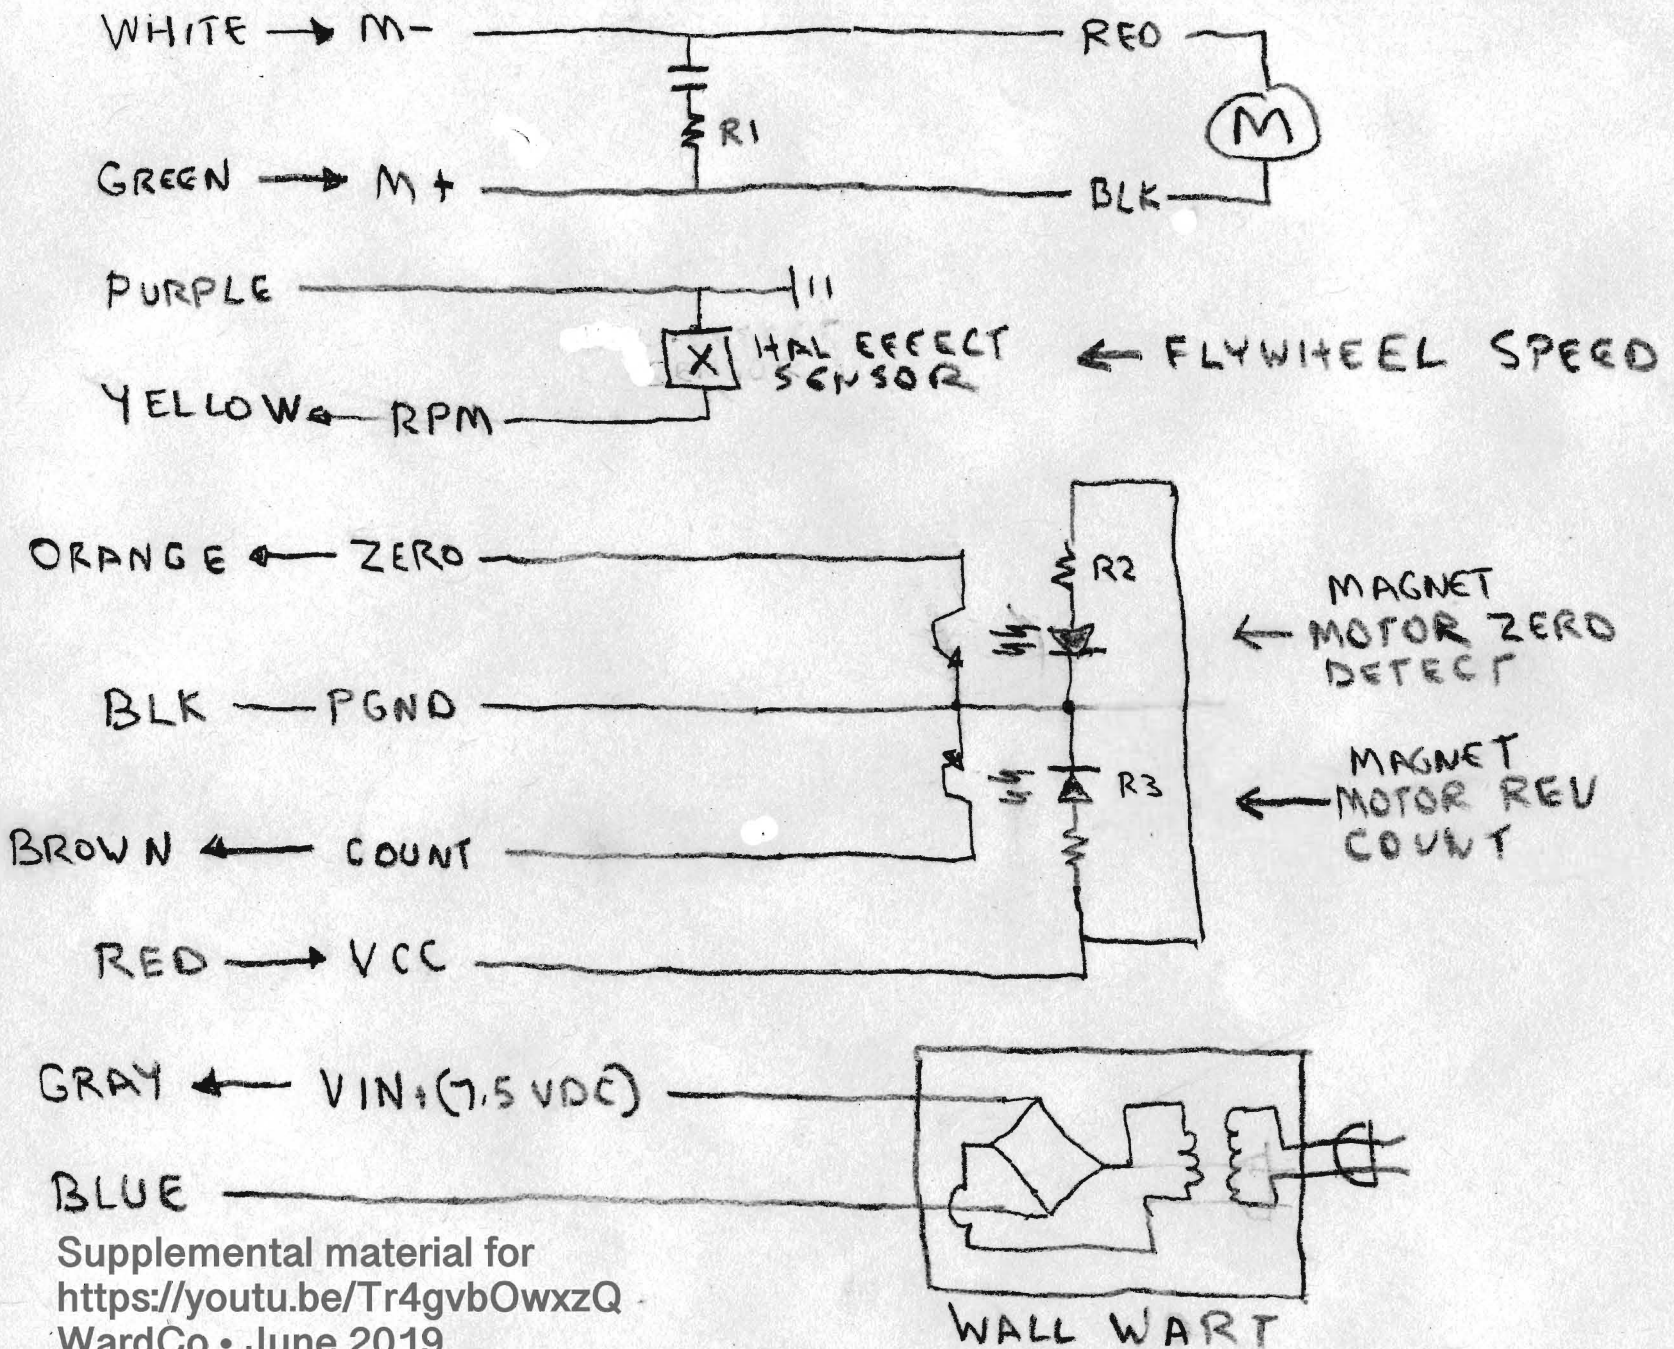 WHITE → M- RED
M
R1
GREEN → M+ BLK
PURPLE
HAL EFFECT
SENSOR
← FLYWHEEL SPEED
X
YELLOW ← RPM
ORANGE ← ZERO
R2
MAGNET
← MOTOR ZERO
DETECT
BLK — PGND
MAGNET
← MOTOR REV
COUNT
R3
BROWN ← COUNT
RED → VCC
GRAY ← VIN+(7.5 VDC)
BLUE
Supplemental material for
https://youtu.be/Tr4gvbOwxzQ
WardCo • June 2019
WALL WART